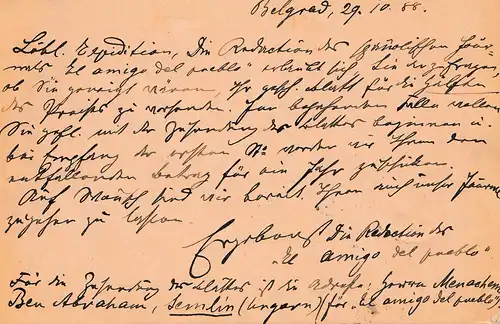 Belgrad, 29. 10. 88.
Löbl. Expedition, Die Redaction des spaniolischen Jour-
nals "El amigo del pueblo" erlaubt sich Sie anzufragen
ob Sie geneigt wären, Ihr gesch. Blatt für die Hälfte
des Preises zu versenden. Im bejahenden Falle wollen
Sie gefl. mit der Zusendung des Blattes beginnen u.
bei Empfang der ersten No werden wir Ihnen den
entfallenden Betrag für ein Jahr zuschicken.
Auf Wunsch sind wir bereit, Ihnen auch unser Journal
zugehen zu lassen.
Ergebenst Die Redaction des
"El amigo del pueblo"
Für die Zusendung des Blattes ist die Adresse: Herrn Menachem
Ben Abraham, Semlin (Ungarn) für "El amigo del pueblo"